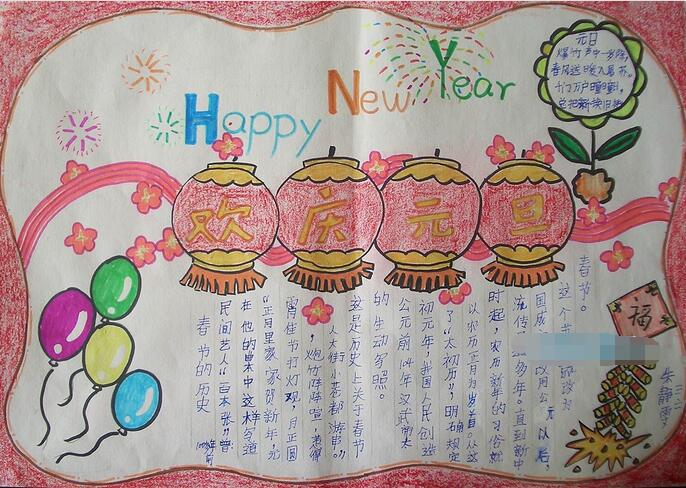 Happy New Year
元日
爆竹声中一岁除，
春风送暖入屠苏。
千门万户曈曈日，
总把新桃换旧符
欢庆元旦
福
朱静雯
春节的历史
民间艺人“百本张”曾
在他的唱本中这样写道
“正月里家家贺新年，元
宵佳节打灯观，月正圆
，炮竹阵阵喧，惹得
人大街小巷都游串”。
这是历史上关于春节
的生动写照。
公元前104年汉武帝太
初元年，我国人民创造
了“太初历”，明确规定
以农历正月为岁首。从这
时起，农历新年的习俗就
流传
多年。直到新中
国成
以后，
这个节
改为
春节。